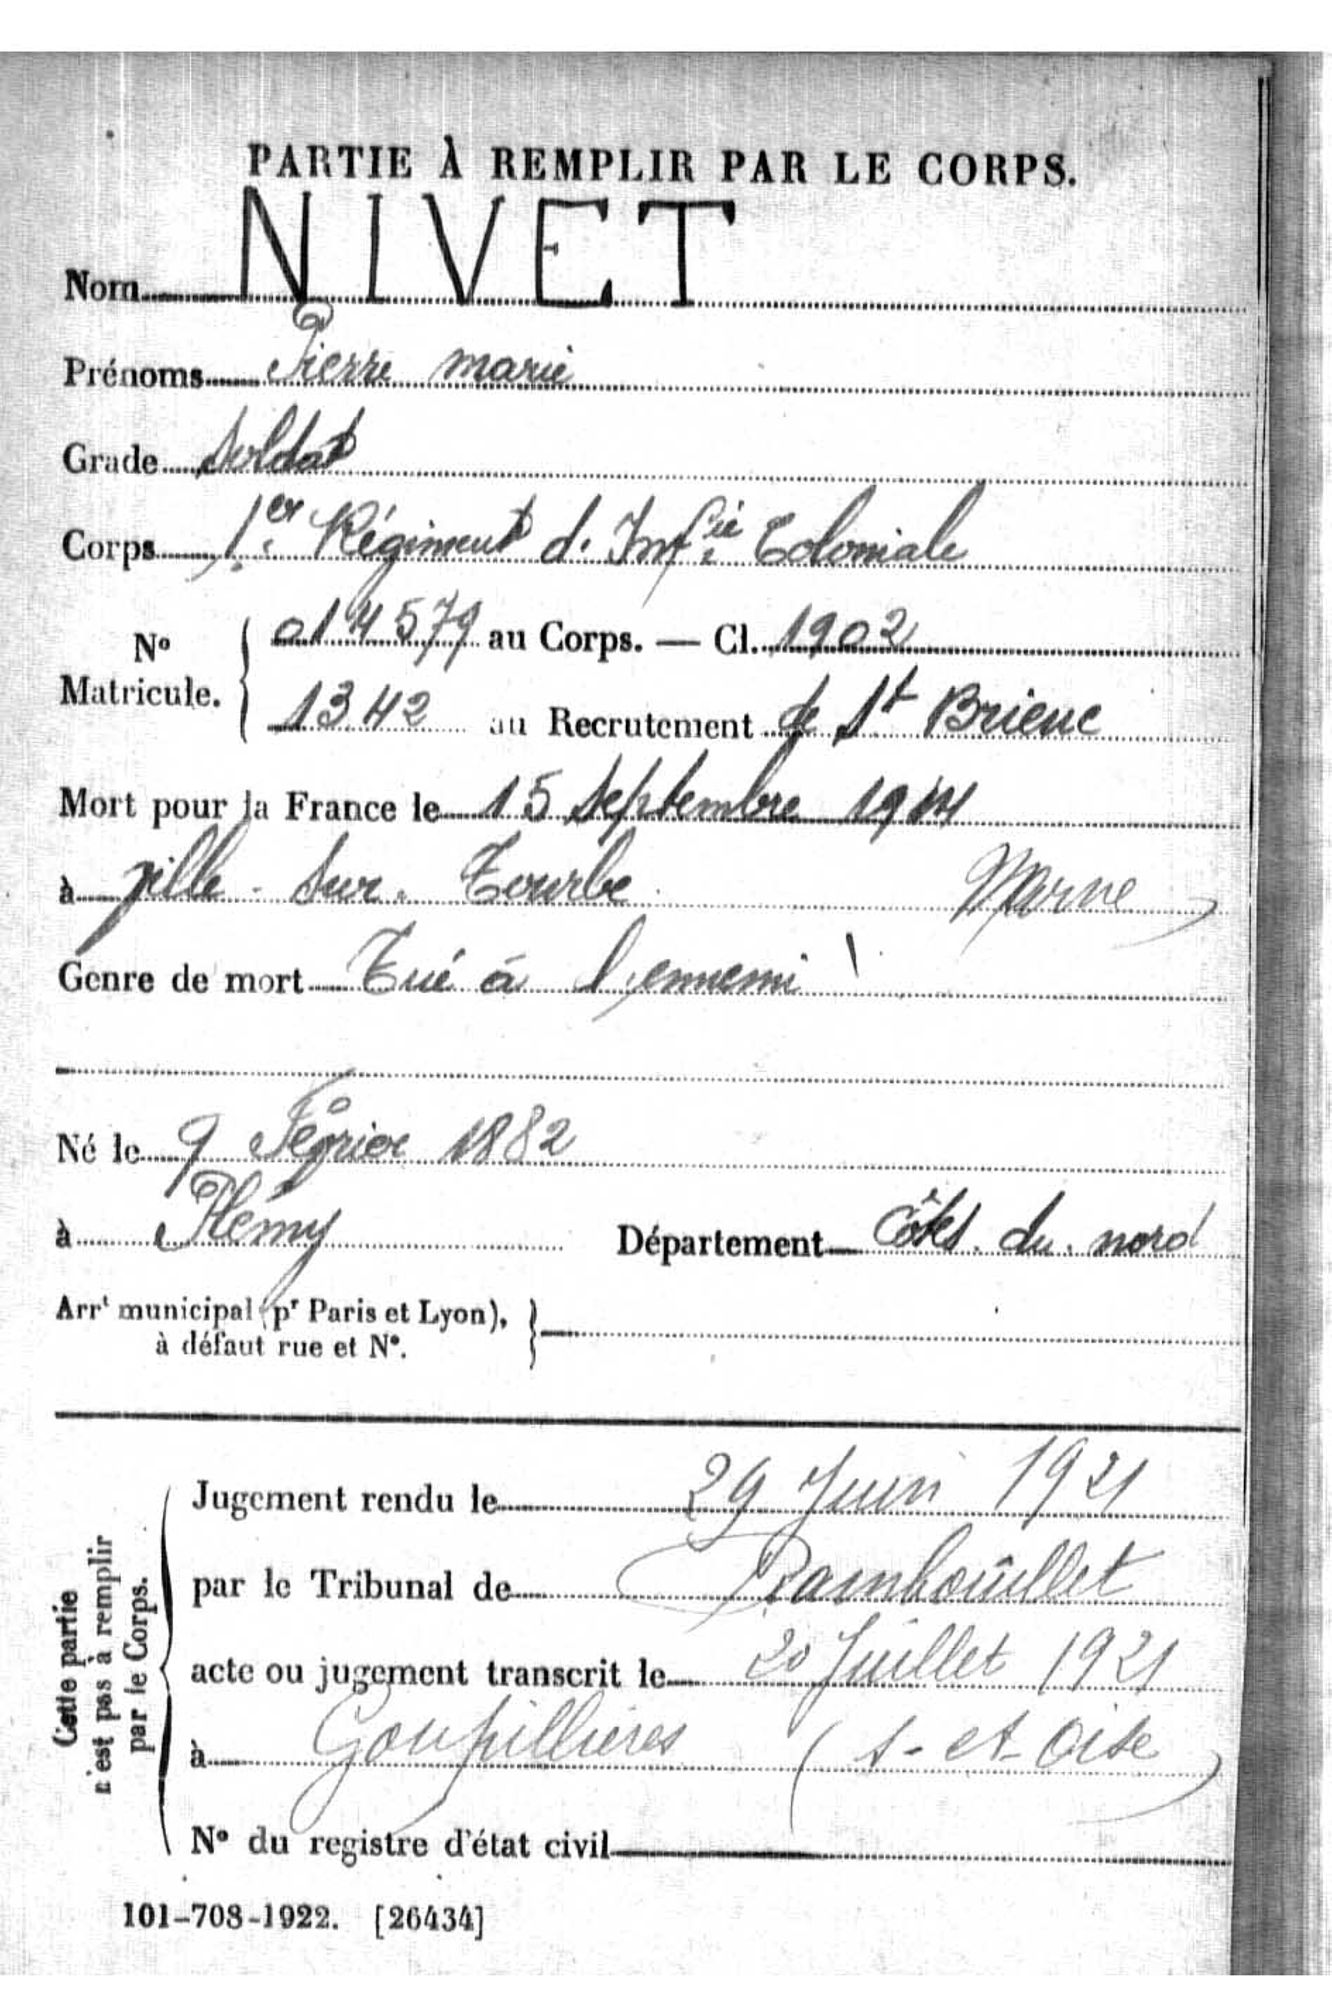 PARTIE À REMPLIR PAR LE CORPS.
Nom NIVET
Prénoms Pierre marie
Grade Soldat
Corps 1er Régiment d. Infie Coloniale
No Matricule. { 014579 au Corps. — Cl. 1902
1342 au Recrutement de St Brieuc
Mort pour la France le 15 Septembre 1914
à ville - sur - Tourbe Marne
Genre de mort Tué à l'ennemi
Né le 9 Février 1882
à Plémy Département Côtes. du. nord
Arrt municipal (pr Paris et Lyon),
à défaut rue et No.
Cette partie
n'est pas à remplir
par le Corps.
Jugement rendu le 29 Juin 1921
par le Tribunal de Rambouillet
acte ou jugement transcrit le 20 Juillet 1921
à Goupillières (S-et-Oise)
No du registre d'état civil
101-708-1922. [26434]